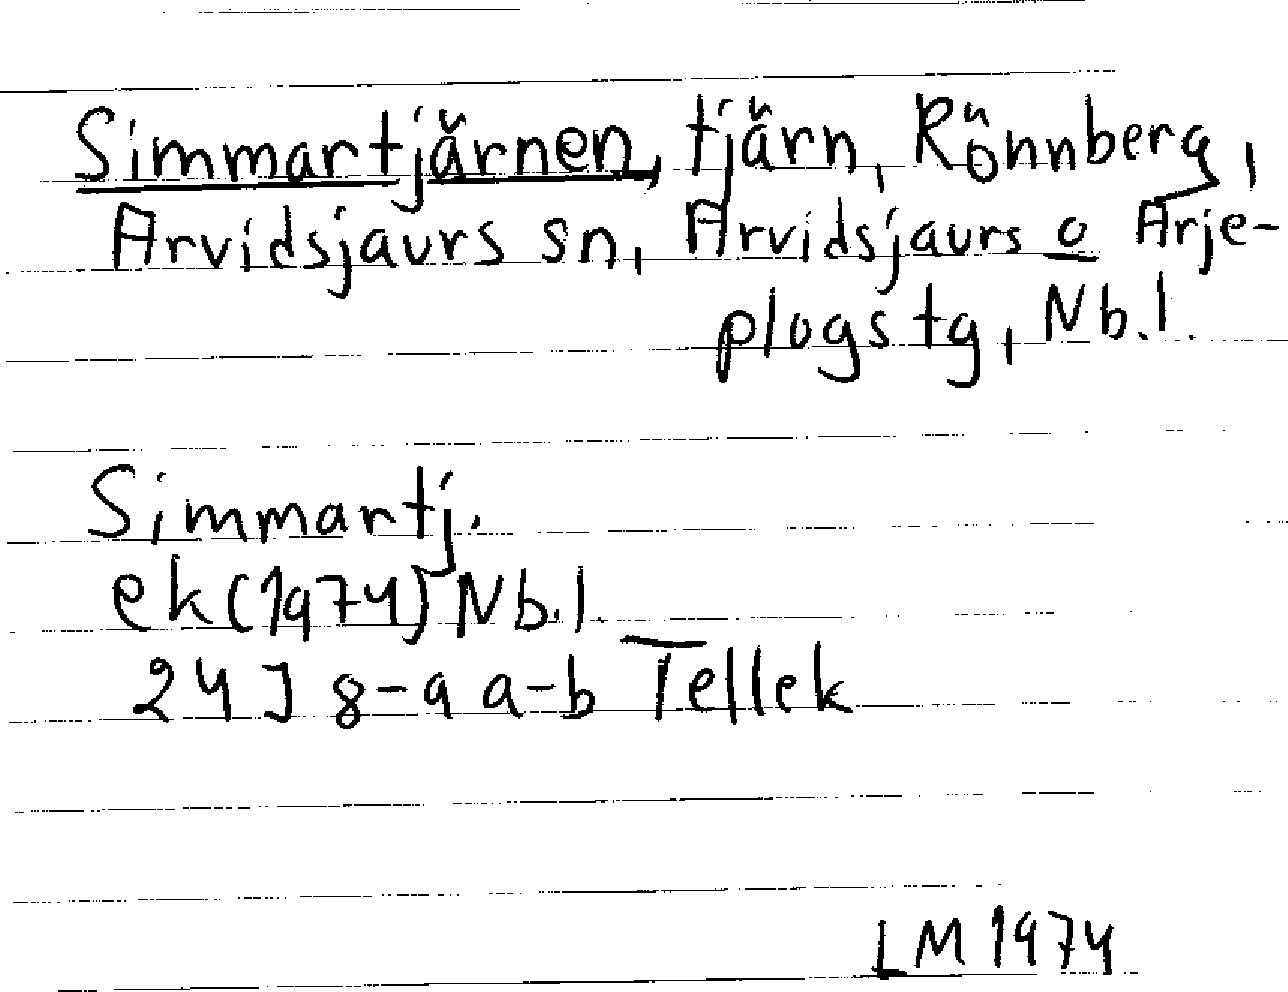 Simmartjärnen, tjärn, Rönnberg,
Arvidsjaurs sn, Arvidsjaurs o Arje-
plogs tg, Nb.l.
Simmartj.
ek (1974) Nb.l.
24J 8-9 a-b Tellek
LM 1974